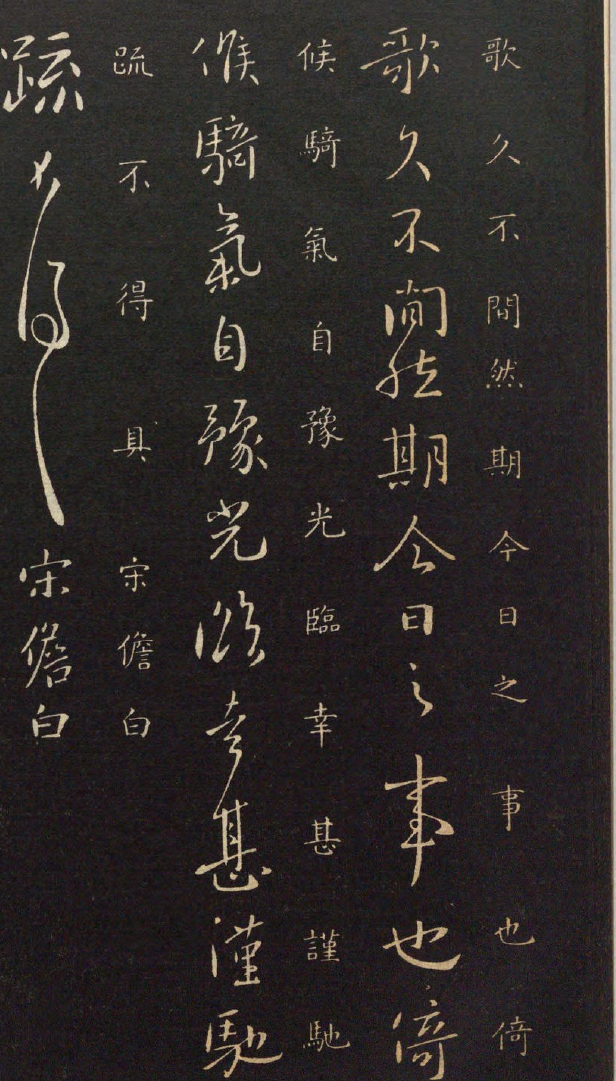 歌久不問然期今日之事也倚
歌久不问然期今日之事也倚
候騎氣自豫光臨幸甚謹馳
候騎氣自豫光臨幸甚謹馳
疏不得具宋儋白
疏不得具宋儋白